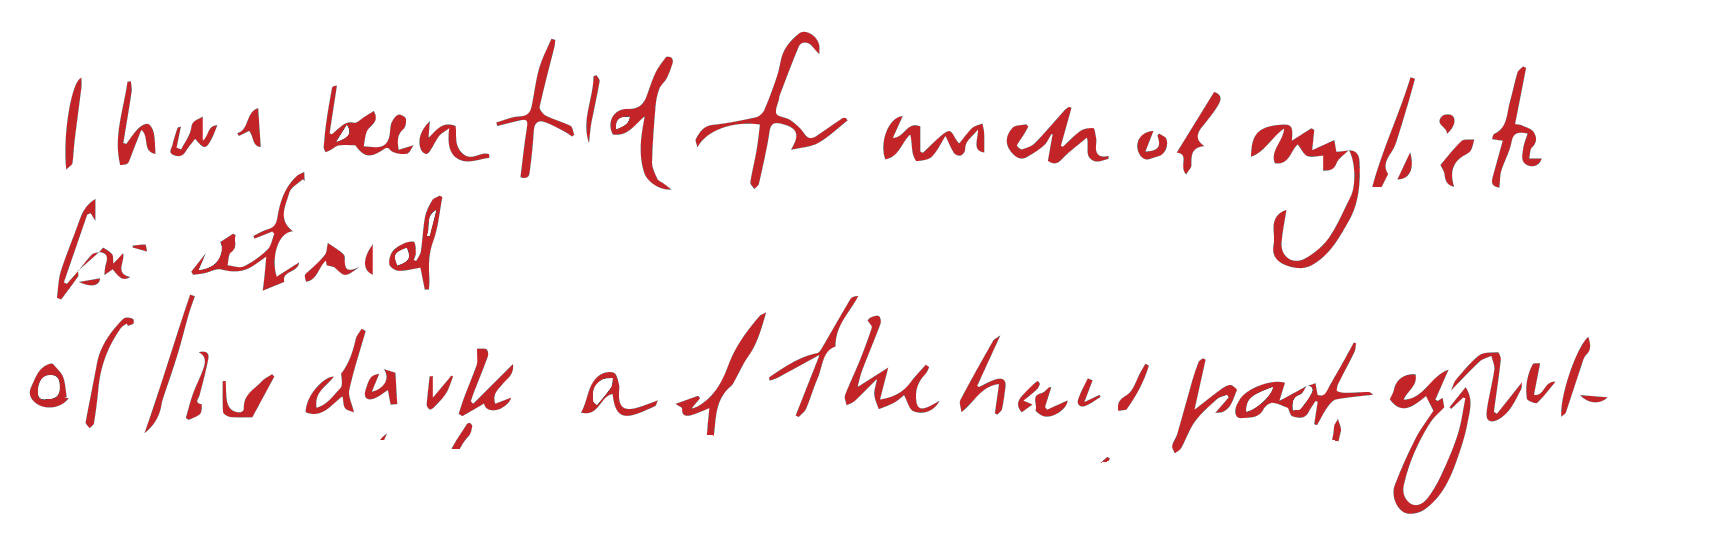 I have been told for much of my life to
be afraid
of the dark and the hours past eight